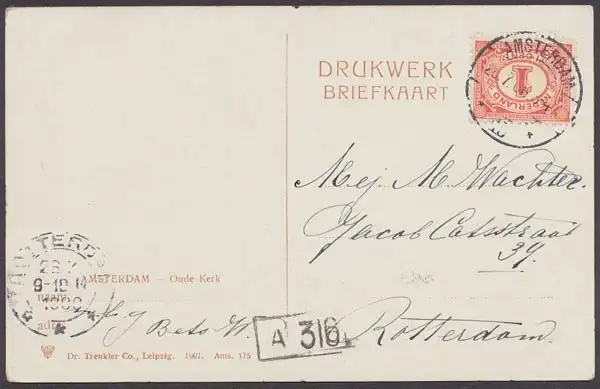 DRUKWERK
BRIEFKAART
AMSTERDAM
1
NEDERLAND
Mej. M. Wachter.
Jacob Catsstraat
39.
Rotterdam.
ROTTERD
9-10
AMSTERDAM — Oude Kerk
naam
adr
Bets W.
A 316
Dr. Trenkler Co., Leipzig. 1907. Ams. 175